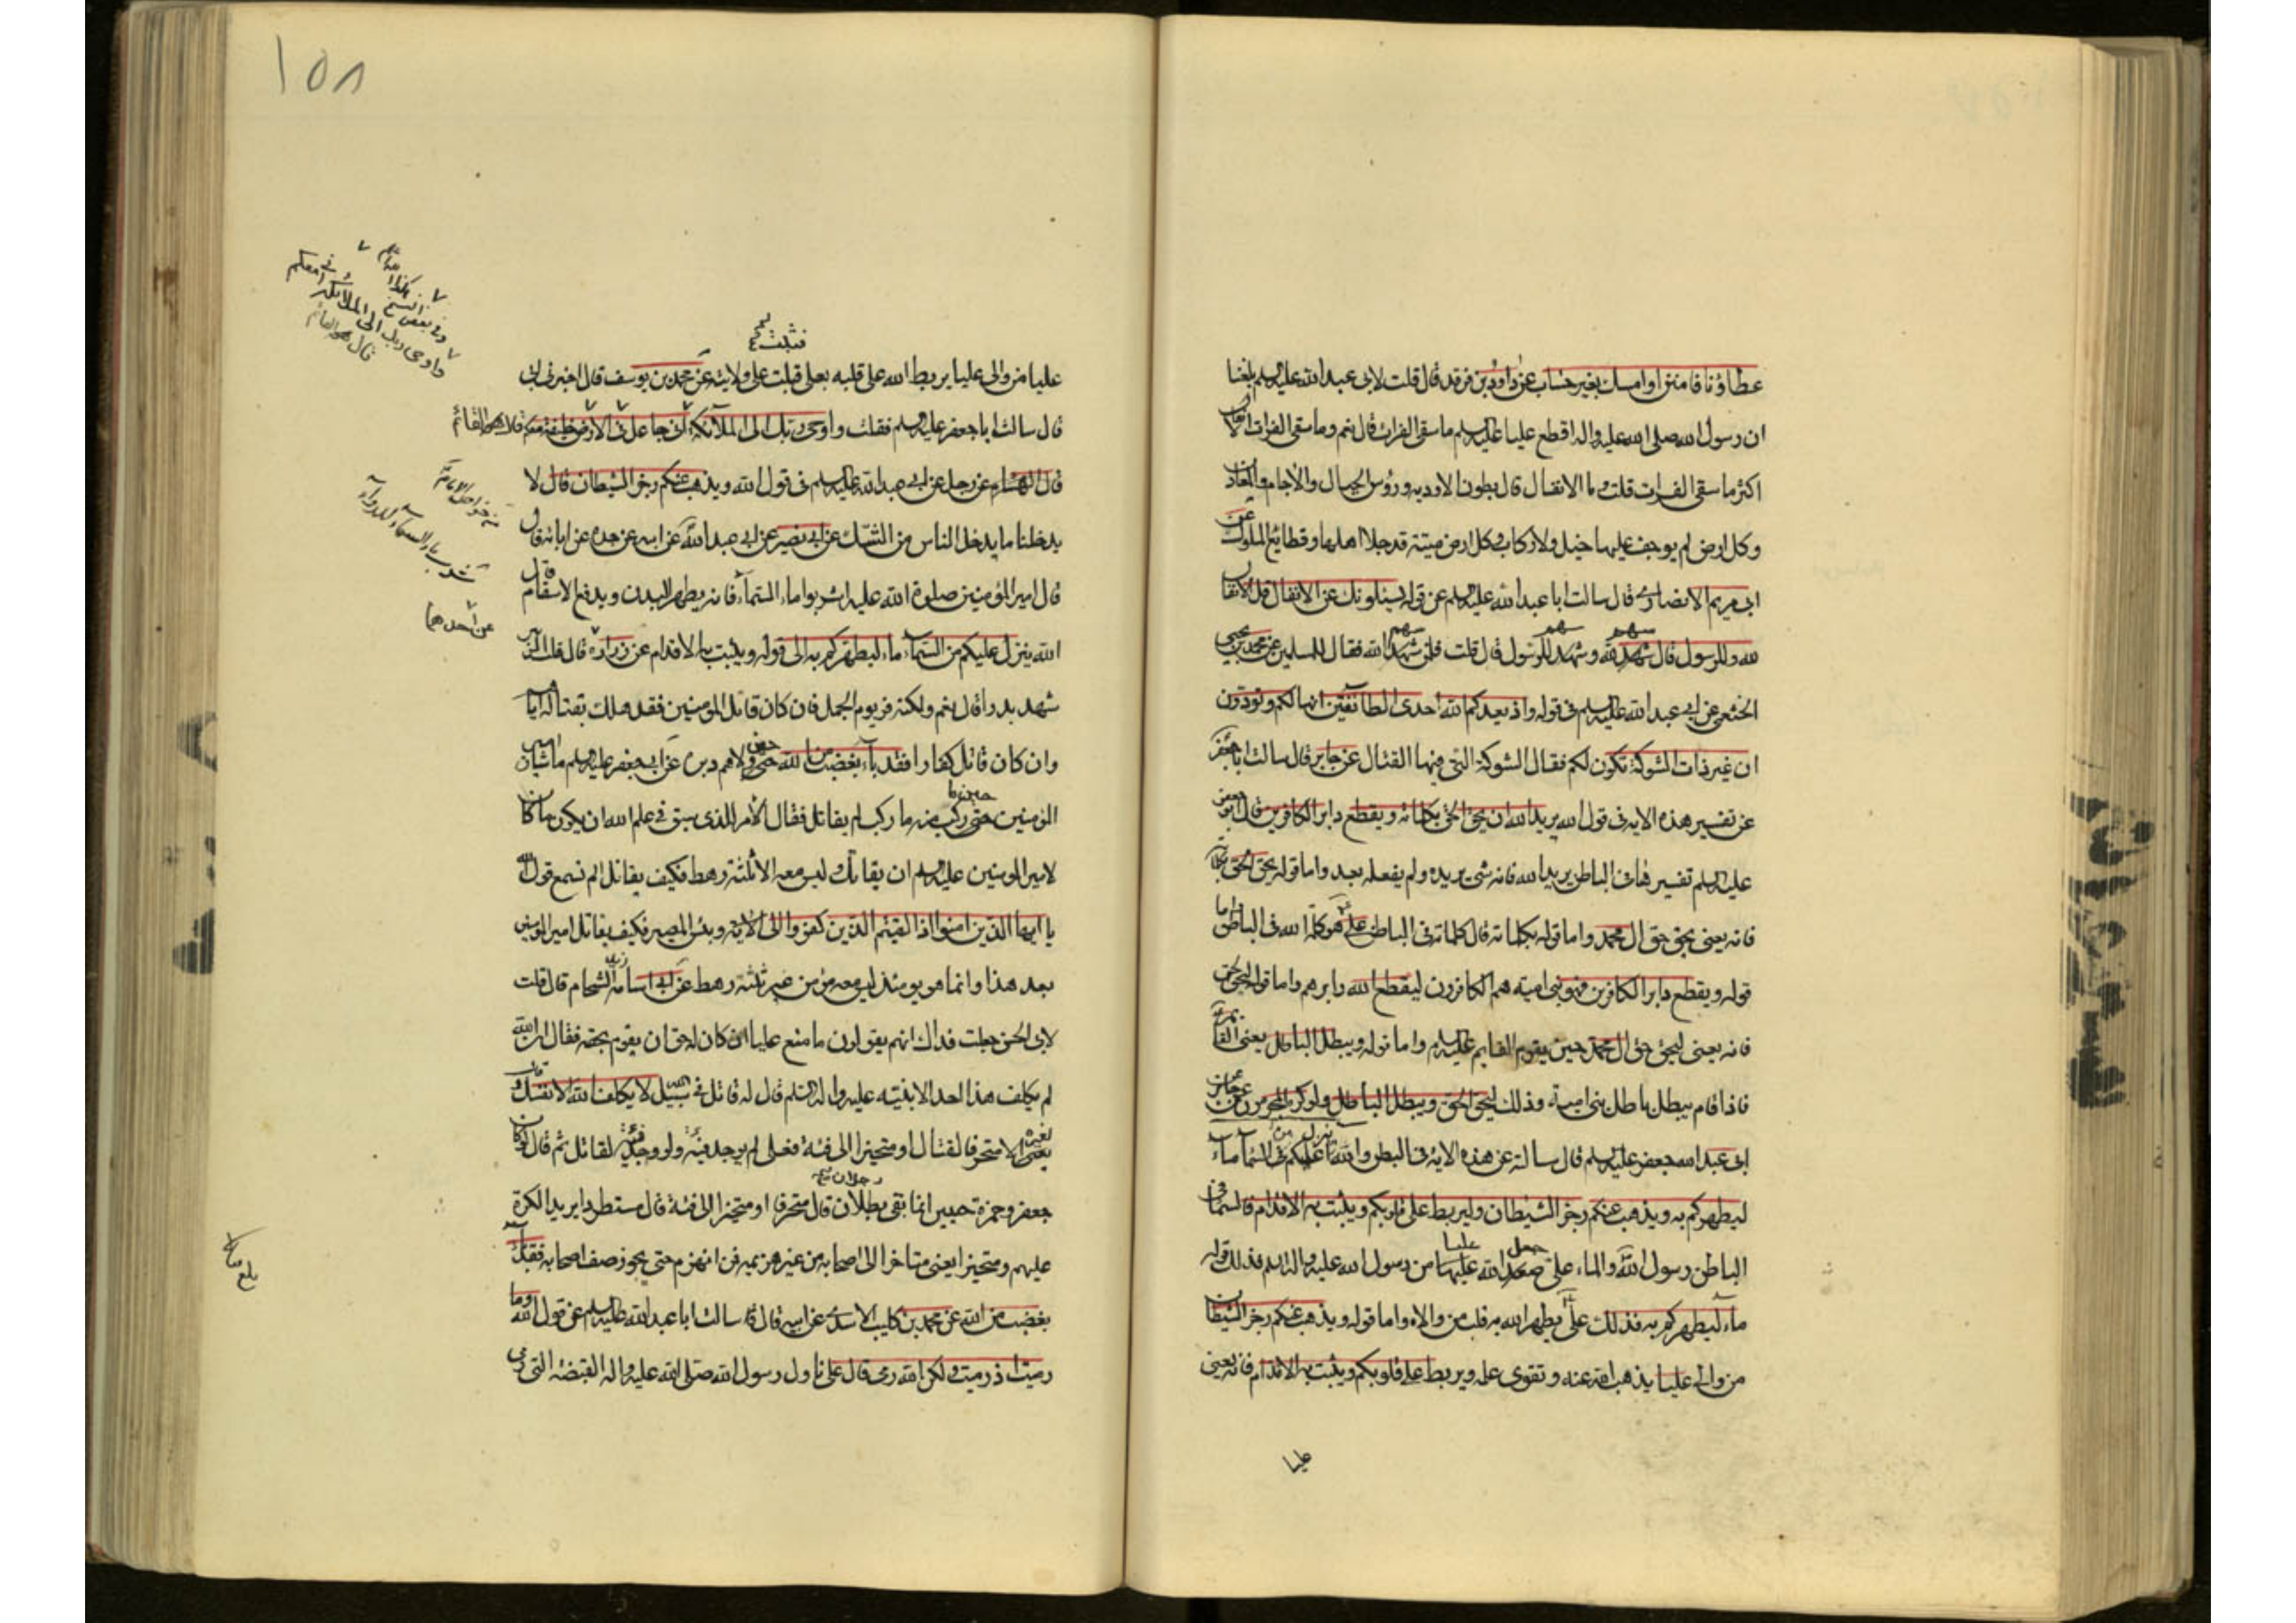 عطاؤنا فامنن او امسك بغير حساب عن داود بن فرقد قال قلت لابى عبد الله عليه السلم بلغنا
ان رسول الله صلى الله عليه واله اقطع عليا عليه السلم ما سقى الفرات قال نعم وما سقى الفرات الانفال
اكثر ما سقى الفرات قلت وما الانفال قال بطون الاودية ورؤس الجبال والاجام والمعادن
وكل ارض لم يوجف عليها خيل ولا ركاب وكل ارض ميتة قد جلا اهلها وقطائع الملوك عن
ابى مريم الانصارى قال سالت ابا عبد الله عليه السلم عن قوله يسئلونك عن الانفال قل الانفال
لله وللرسول قال سهم لله وسهم للرسول قال قلت فلمن سهم الله فقال للمسلمين عن محمد بن يحيى
الخثعمى عن ابى عبد الله عليه السلم فى قوله واذ يعدكم الله احدى الطائفتين انها لكم وتودون
ان غير ذات الشوكة تكون لكم فقال الشوكة التى فيها القتال عن جابر قال سالت ابا جعفر
عن تفسير هذه الاية فى قول الله يريد الله ان يحق الحق بكلماته ويقطع دابر الكافرين قال ابو جعفر
عليه السلم تفسيرها فى الباطن يريد الله فانه شىء يريده ولم يفعله بعد واما قوله يحق الحق بكلماته
فانه يعنى يحق حق ال محمد واما قوله بكلماته قال كلماته فى الباطن على هو كلمة الله فى الباطن واما
قوله ويقطع دابر الكافرين فهو بنى امية هم الكافرون ليقطع الله دابرهم واما قوله ليحق الحق
فانه يعنى ليحق حق ال محمد حين يقوم القايم عليه السلم واما قوله ويبطل الباطل يعنى القائم
فاذا قام يبطل باطل بنى امية وذلك ليحق الحق ويبطل الباطل ولو كره المجرمون عن جابر عن
ابى عبد الله جعفر عليه السلم قال سالته عن هذه الاية فى البطن وينزل عليكم من السماء ماء
ليطهركم به ويذهب عنكم رجز الشيطان وليربط على قلوبكم ويثبت به الاقدام قال السماء فى
الباطن رسول الله والماء على جعل الله عليا من رسول الله عليه واله السلم فذلك قوله
ماء ليطهركم به فذلك على يطهر الله به قلب من والاه واما قوله ويذهب عنكم رجز الشيطان
من والى عليا يذهب الله عنه وتقوى عليه ويربط على قلوبكم ويثبت به الاقدام فانه يعنى
عليا
١٥٨
فثبت
عليا من والى عليا يربط الله على قلبه بعلى فيثبت على ولايته عن محمد بن يوسف قال اخبرنى ابى
قال سالت ابا جعفر عليه السلم فقلت واوحى ربك الى الملائكة انى جاعل فى الارض خليفة
قال الهام عن رجل عن ابى عبد الله عليه السلم فى قول الله ويذهب عنكم رجز الشيطان قال لا
يدخلنا ما يدخل الناس من الشك عن ابى بصير عن ابى عبد الله عن ابيه عن جده عن ابائه قال
قال امير المؤمنين صلوة الله عليه اشربوا ماء السماء فانه يطهر البدن ويدفع الاسقام قال
الله ينزل عليكم من السماء ماء ليطهركم به الى قوله ويثبت به الاقدام عن زرارة قال قلت الزبير
شهد بدرا قال نعم ولكنه فر يوم الجمل فان كان قاتل المؤمنين فقد هلك بقتاله اياهم
وان كان قاتل كفارا فقد باء بغضب من الله حين ولاهم دبره عن ابى جعفر عليه السلم ما شان امير
المؤمنين حين ركب منه ما ركب لم يقاتل فقال للامر الذى سبق فى علم الله ان يكون ما كان
لامير المومنين عليه السلم ان يقاتل وليس معه الا ثلثة رهط فكيف يقاتل الم تسمع قول الله
يا ايها الذين امنوا اذا لقيتم الذين كفروا الى الاية وبئس المصير فكيف يقاتل امير المومنين
بعد هذا وانما هو يومئذ ليس معه مؤمن غير ثلثة رهط عن ابى اسامة زيد الشحام قال قلت
لابى الحسن جعلت فداك انهم يقولون ما منع عليا ان كان له حق ان يقوم بحقه فقال ان الله
لم يكلف هذا احد الا نبيه عليه واله السلم قال له قاتل فى سبيل الله لا يكلف الله الا نفسك وقال
لغيره الا متحرفا لقتال او متحيزا الى فئة فعلى لم يجد فئة ولو وجد فئة لقاتل ثم قال لو كان
رجلان
جعفر وحمزة حيين انما بقى بطلان قال متحرفا او متحيزا الى فئة قال مستطردا يريد الكرة
عليهم ومتحيزا يعنى متاخرا الى اصحابه من غير هزيمة فمن انهزم حتى يجوز صف اصحابه فقد باء
بغضب من الله عن محمد بن كليب الاسدى عن ابيه قال سالت ابا عبد الله عليه السلم عن قول الله وما
رميت اذ رميت ولكن الله رمى قال على ناول رسول الله صلى الله عليه واله القبضة التى رمى
وفى بعض النسخ
واوحى ربك الى الملائكة انى معكم
قال هو القائم
عن احدهما